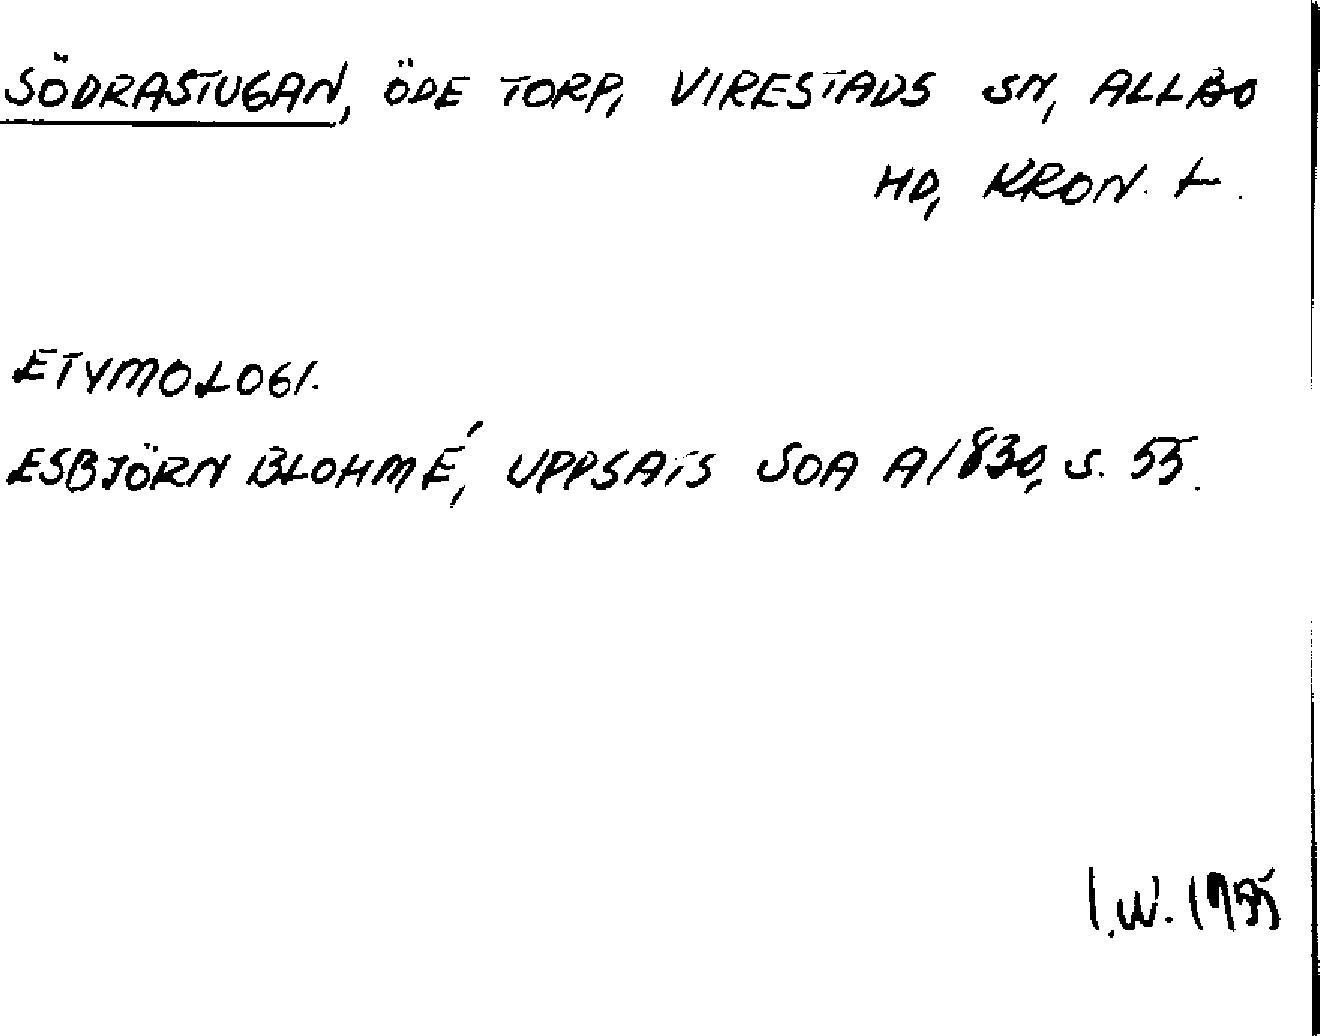 SÖDRASTUGAN, ÖDE TORP, VIRESTADS SN, ALLBO
HD, KRON. L.
ETYMOLOGI.
ESBJÖRN BLOHMÉ, UPPSATS SOA A/830, S. 55.
I.W.